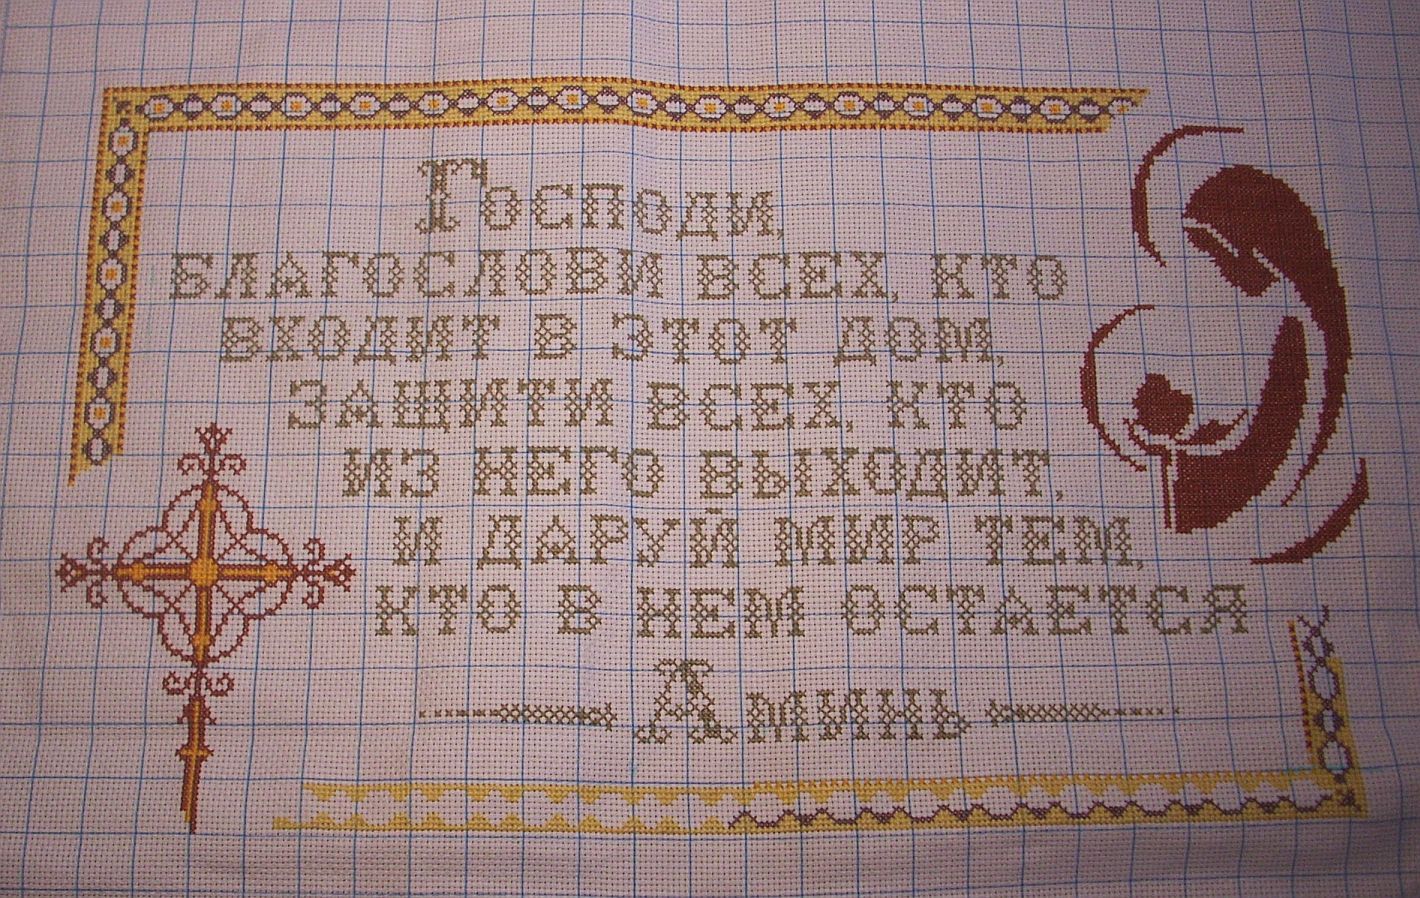 Господи,
БЛАГОСЛОВИ ВСЕХ, КТО
ВХОДИТ В ЭТОТ ДОМ,
ЗАЩИТИ ВСЕХ, КТО
ИЗ НЕГО ВЫХОДИТ,
И ДАРУЙ МИР ТЕМ,
КТО В НЕМ ОСТАЕТСЯ
Аминь